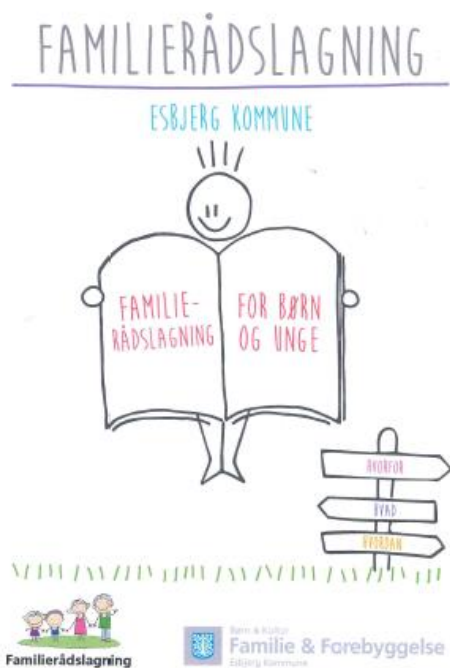 FAMILIERÅDSLAGNING
ESBJERG KOMMUNE
FAMILIE-
RÅDSLAGNING
FOR BØRN
OG UNGE
HVORFOR
HVAD
HVORDAN
Familierådslagning
Børn & Kultur
Familie & Forebyggelse
Esbjerg Kommune